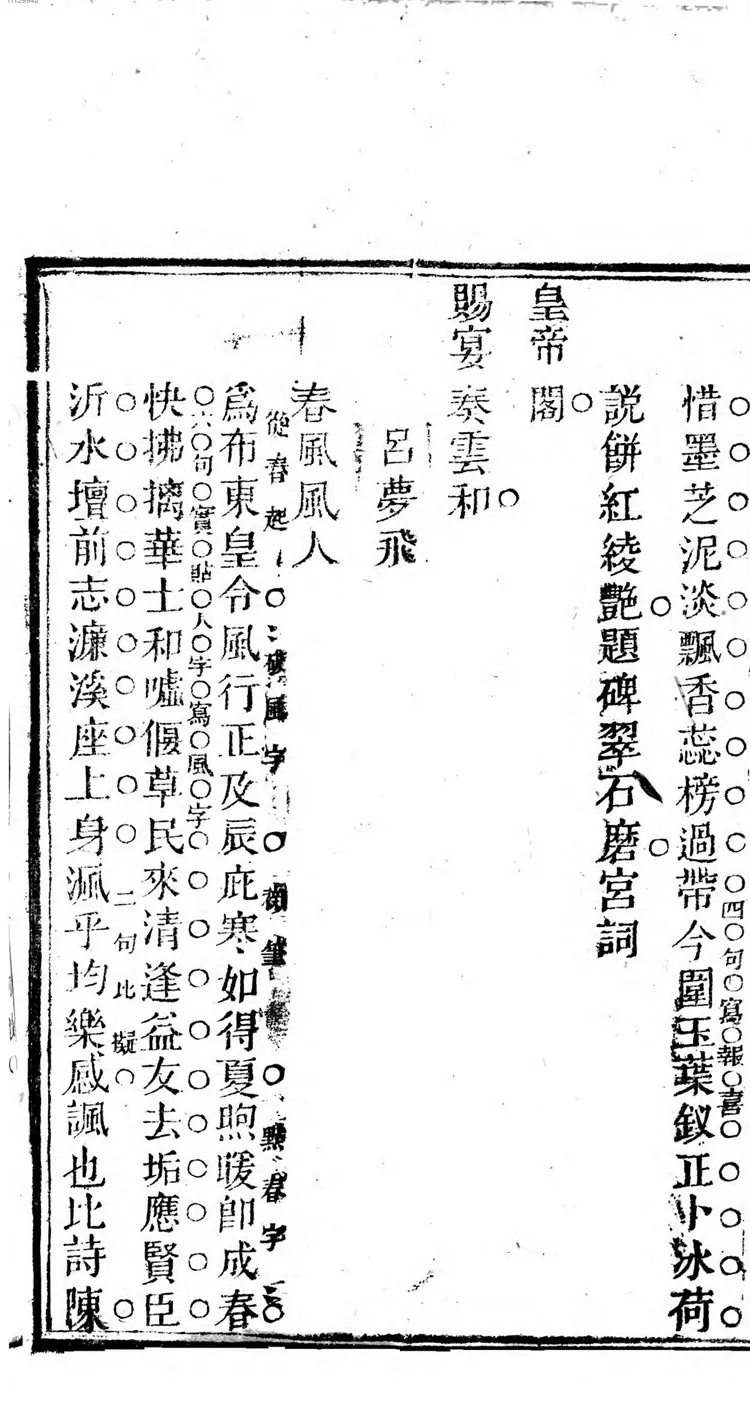 惜墨芝泥淡飄香蕊榜過帶今圍玉葉釵正卜冰荷
四句寫報喜
説餅紅綾艷題碑翠石磨宮詞
皇帝閣
賜宴奏雲和
呂夢飛
春風風人
從春起
破風字
點春字
爲布東皇令風行正及辰庇寒如得夏煦暖即成春
六句實貼人字寫風字
快拂摛華士和噓偃草民來清逢益友去垢應賢臣
二句比擬
沂水壇前志濂溪座上身渢乎均樂感諷也比詩陳